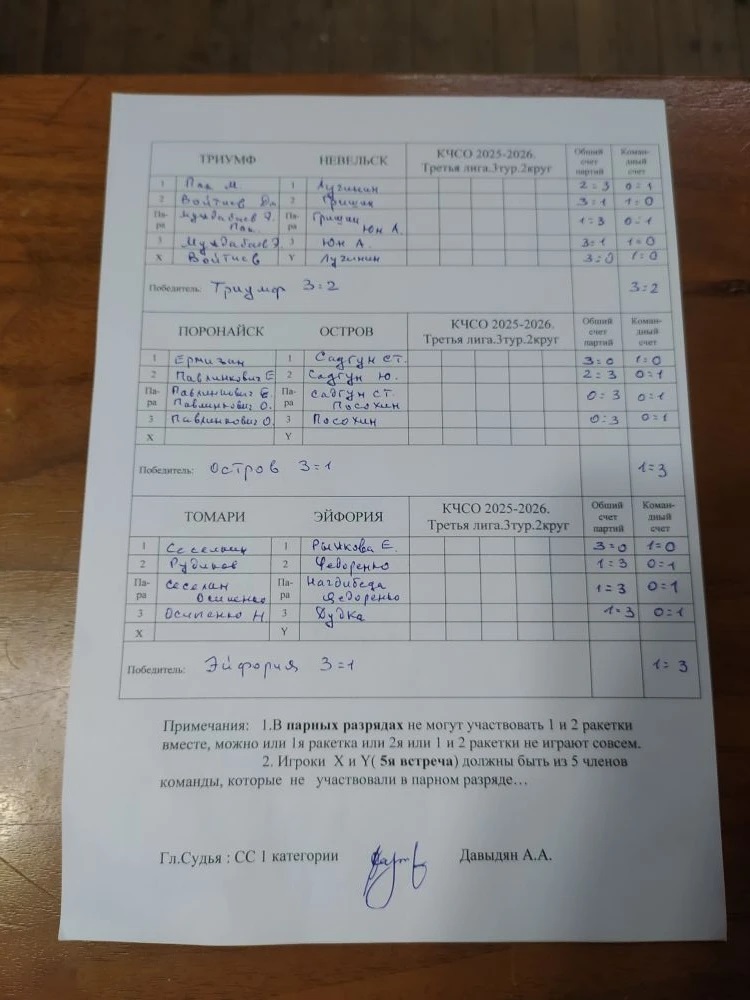 ТРИУМФ НЕВЕЛЬСК КЧСО 2025-2026. Третья лига.3тур.2круг Общий счет партий Коман-дный счет
1 Пак М. 1 Лугинин 2:3 0:1
2 Войтиев 2 Гришан 3:1 1:0
Па-ра Мулдабаев Пак. Па-ра Гришан Юн А. 1:3 0:1
3 Мулдабаев 3 Юн А. 3:1 1=0
X Войтиев Y Лугинин 3:0 1:0
Победитель: Триумф 3:2 3:2
ПОРОНАЙСК ОСТРОВ КЧСО 2025-2026. Третья лига.3тур.2круг Общий счет партий Коман-дный счет
1 Ермизин 1 Садгун СТ. 3=0 1=0
2 Павлинкович Е 2 Садгун Ю. 2=3 0=1
Па-ра Павлинкович Е. Павлинкович О. Па-ра Садгун СТ. Посохин 0=3 0=1
3 Павлинкович О. 3 Посохин 0:3 0=1
X Y
Победитель: Остров 3=1 1=3
ТОМАРИ ЭЙФОРИЯ КЧСО 2025-2026. Третья лига.3тур.2круг Общий счет партий Коман-дный счет
1 1 Рычкова Е. 3=0 1=0
2 Рудиков 2 Федоренко 1=3 0=1
Па-ра Сеселкин Осипенко Па-ра Нагдибеда Федоренко 1=3 0=1
3 Осипенко Н 3 Дудка 1=3 0=1
X Y
Победитель: Эйфория 3=1 1=3
Примечания: 1.В парных разрядах не могут участвовать 1 и 2 ракетки
вместе, можно или 1я ракетка или 2я или 1 и 2 ракетки не играют совсем.
2. Игроки X и Y( 5я встреча) должны быть из 5 членов
команды, которые не участвовали в парном разряде…
Гл.Судья : СС 1 категории Давыдян А.А.